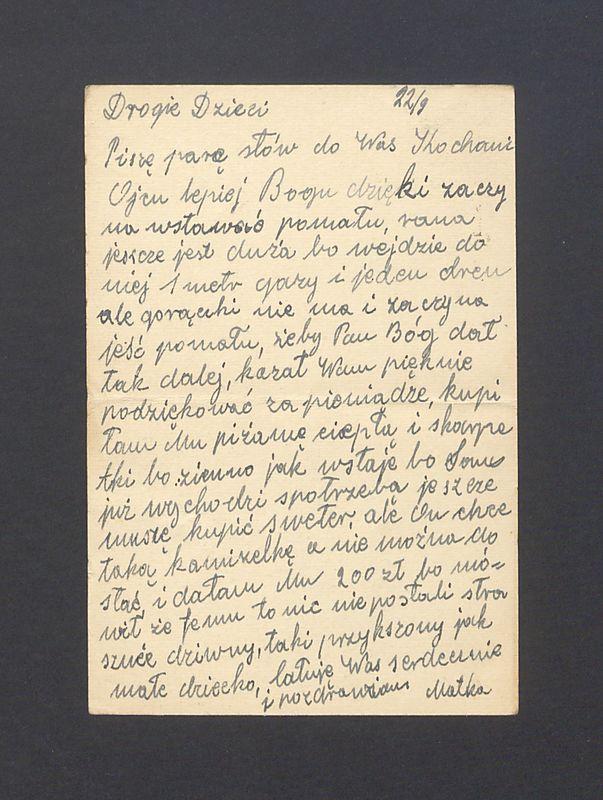 Drogie Dzieci 22/9
Piszę parę słów do Was Kochani
Ojcu lepiej Bogu dzięki zaczy
na wstawać pomału, rana
jeszcze jest duża bo wejdzie do
niej 1 metr gazy i jeden dren
ale gorączki nie ma i zaczyna
jeść pomału, żeby Pan Bóg dał
tak dalej, kazał Wam pięknie
podziękować za pieniądze, kupi
łam Mu piżamę ciepłą i skarpe
tki bo zimno jak wstaje bo Sam
już wychodzi z potrzebą jeszcze
muszę kupić sweter, ale On chce
taką kamizelkę a nie można do
stać, i dałam Mu 200 zł bo mó-
wił że Jemu to nic nie posłali stra
sznie dziwny, taki przykszony jak
małe dziecko, całuję Was serdecznie
i pozdrawiam Matka